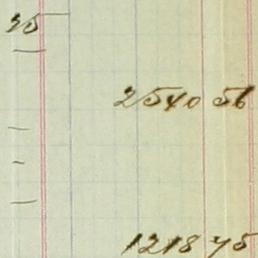 25
2540 56
1218 75